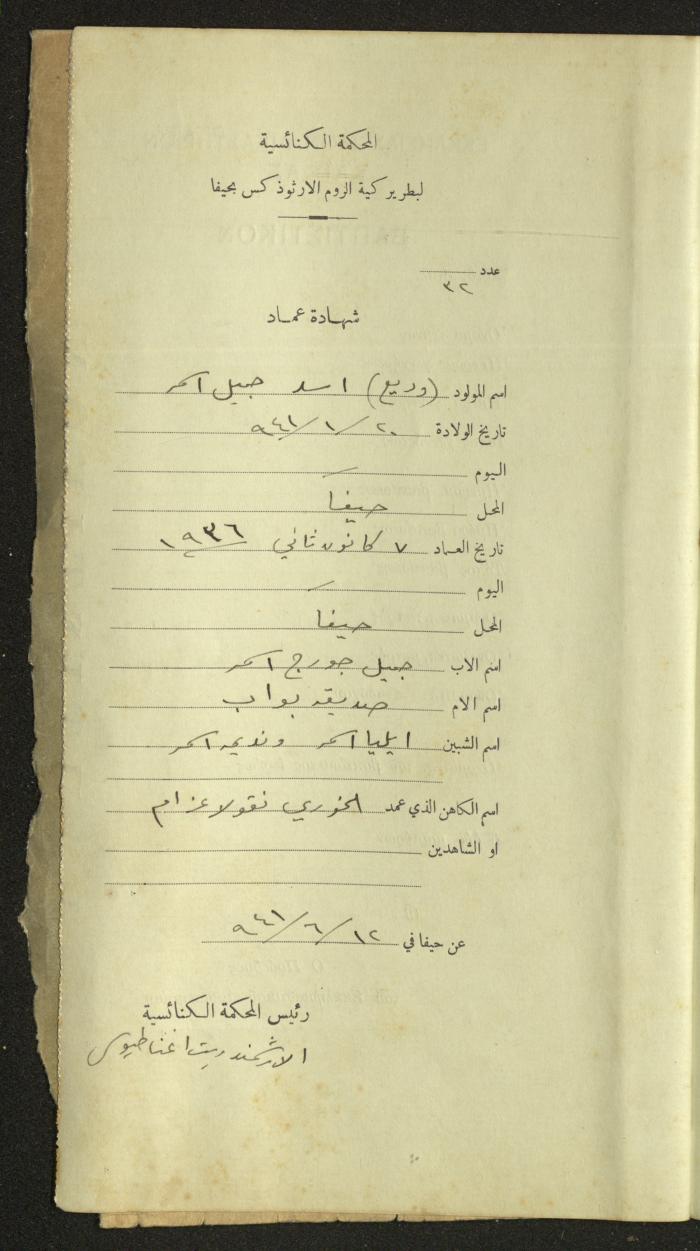 المحكمة الكنائسية
لبطريركية الروم الارثوذكس بحيفا
عدد ٣٢
شهادة عماد
اسم المولود (وديع) اسد جميل اسمر
تاريخ الولادة ٢٠/١/٩٤١
اليوم
المحل حيفا
تاريخ العماد ٧ كانون ثاني ١٩٣٦
اليوم
المحل حيفا
اسم الاب جميل جورج اسمر
اسم الام صديقه بواب
اسم الشبين ايليا اسمر ونديمه اسمر
اسم الكاهن الذي عمد الخوري نقولا عزام
او الشاهدين
عن حيفا في ١٢/٦/٩٤١
رئيس المحكمة الكنائسية
الارشمندريت اغناطيوس